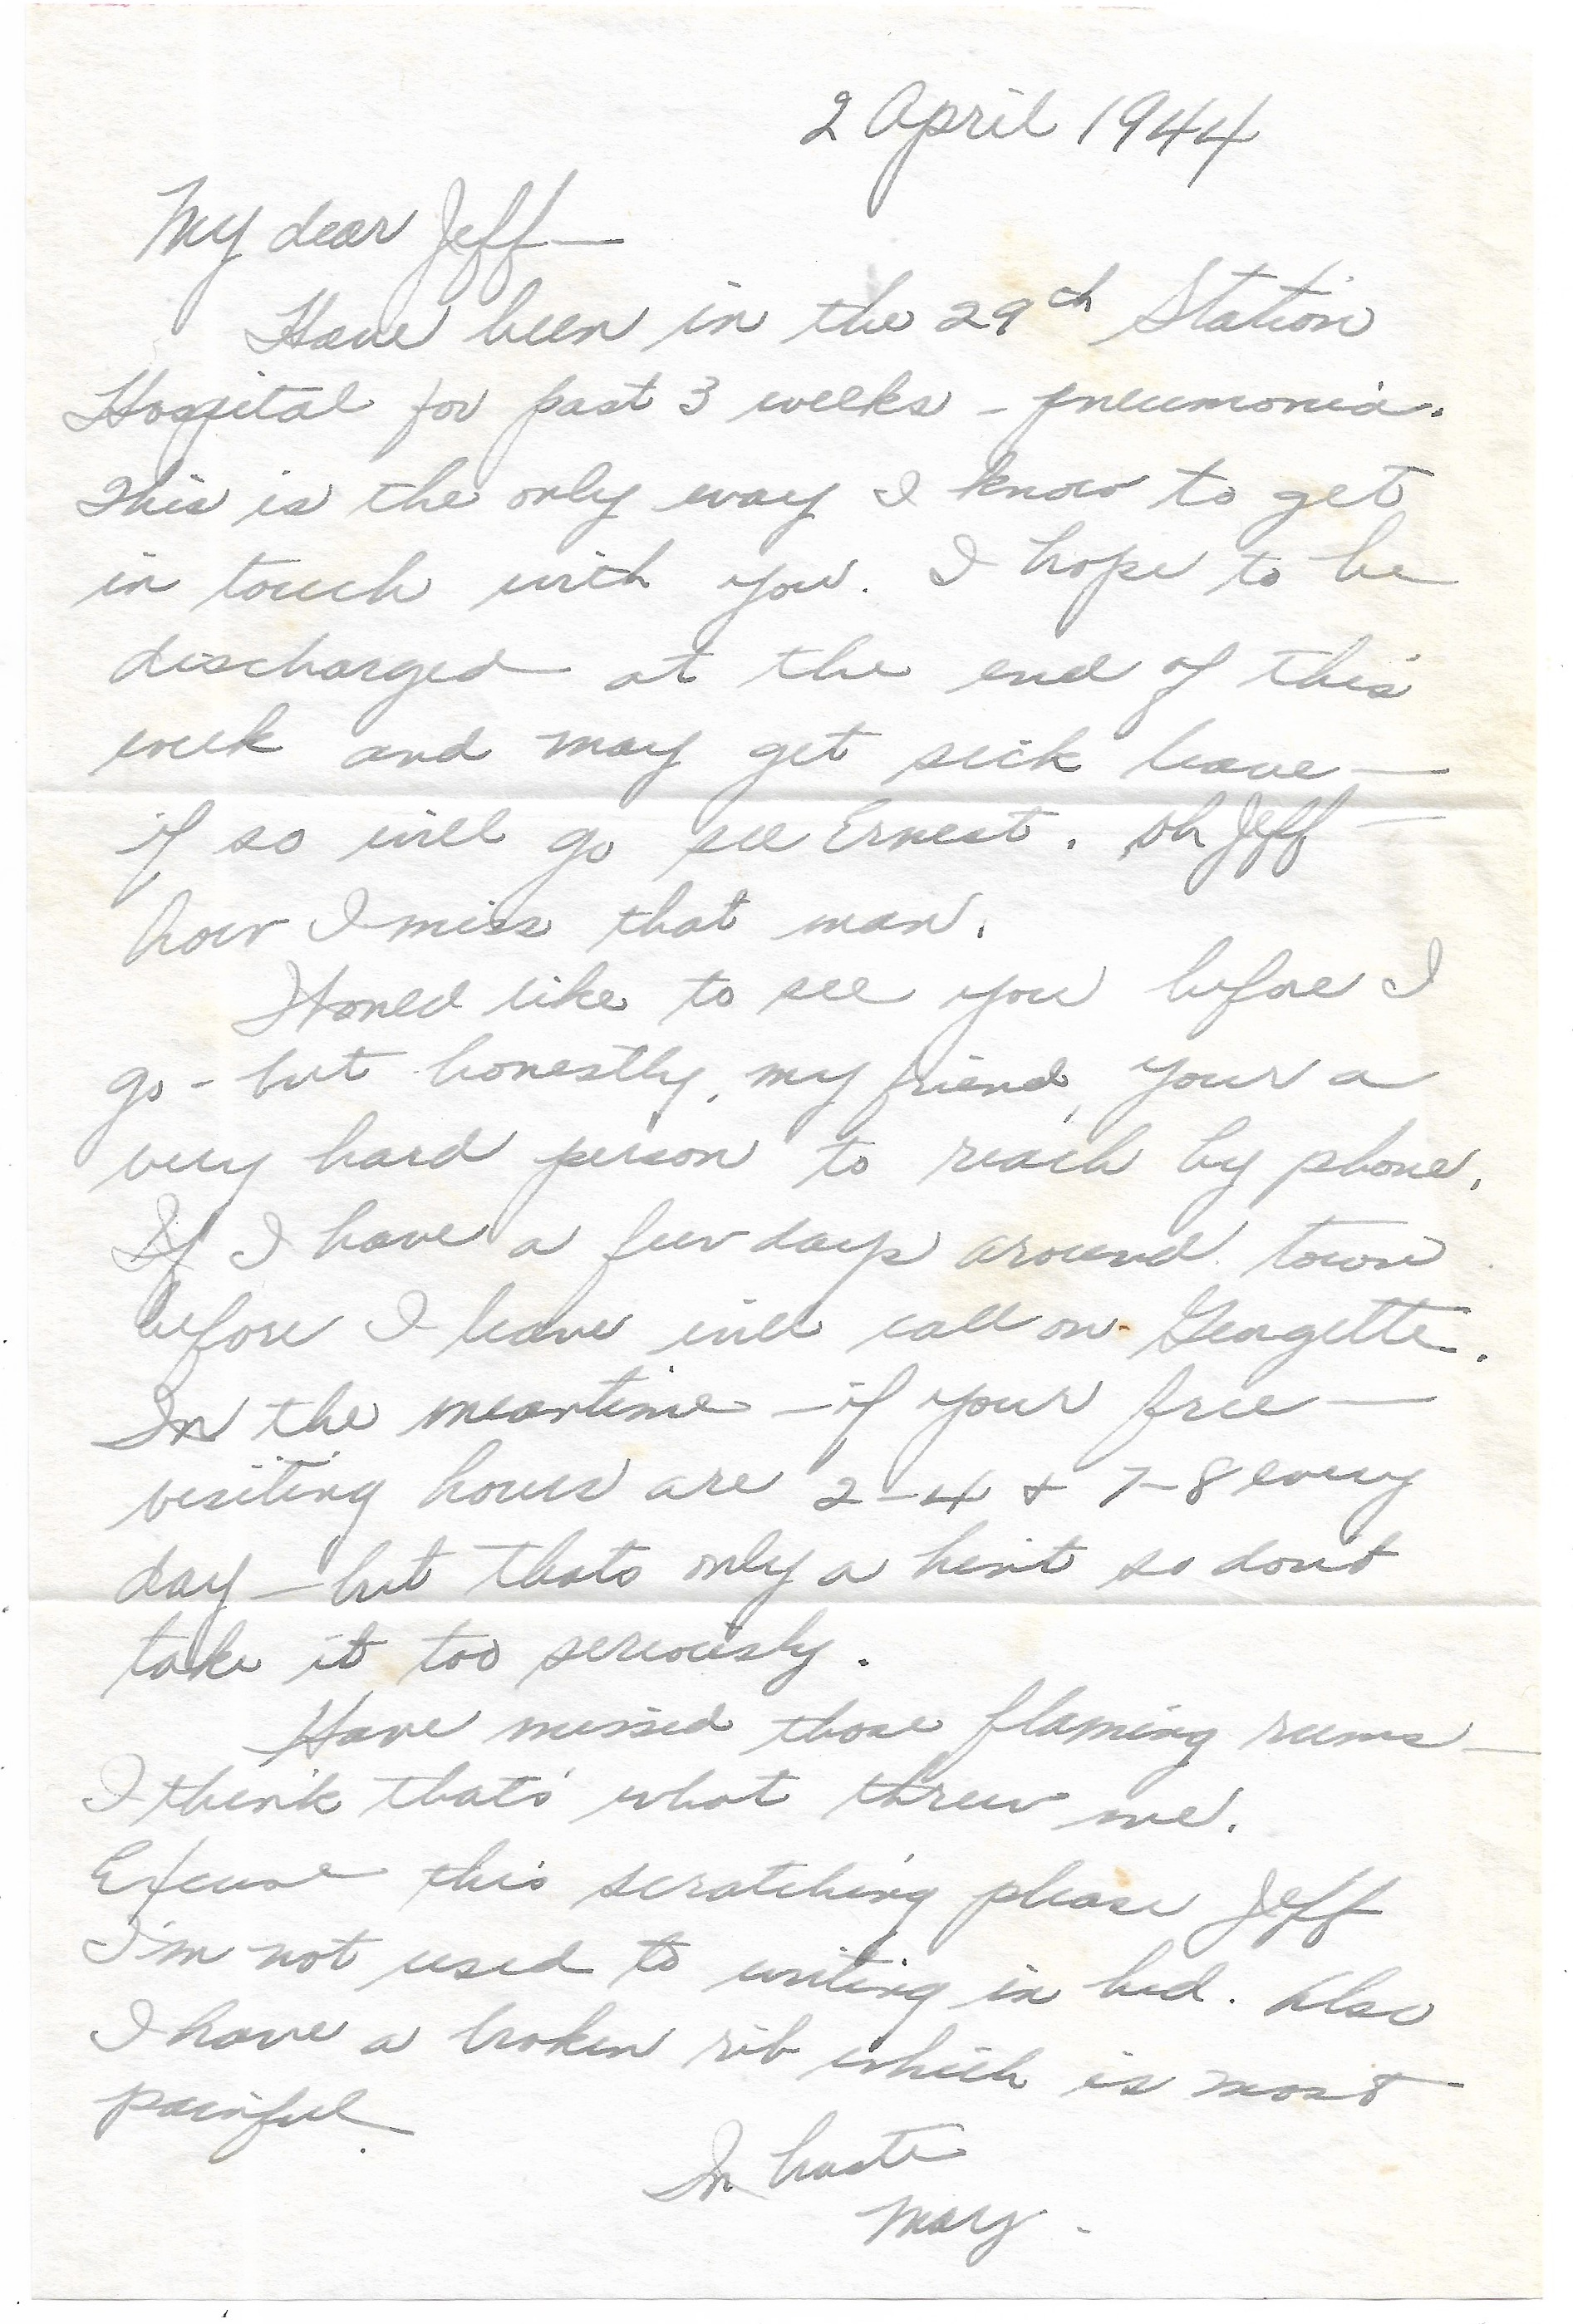 2 April 1944
My dear Jeff —
Have been in the 29th Station
Hospital for past 3 weeks - pneumonia.
This is the only way I know to get
in touch with you. I hope to be
discharged at the end of this
week and may get sick leave —
if so will go see Ernest. Oh Jeff —
how I miss that man.
Would like to see you before I
go - but honestly, my friend, your a
very hard person to reach by phone.
If I have a few days around town
before I leave will call on Georgette.
In the meantime - if your free —
visiting hours are 2-4 + 7-8 every
day - but thats only a hint so dont
take it too seriously.
Have missed those flaming rums —
I think that's what threw me.
Excuse this scratching please Jeff
I'm not used to writing in bed. Also
I have a broken rib which is most
painful.
In haste
Mary.